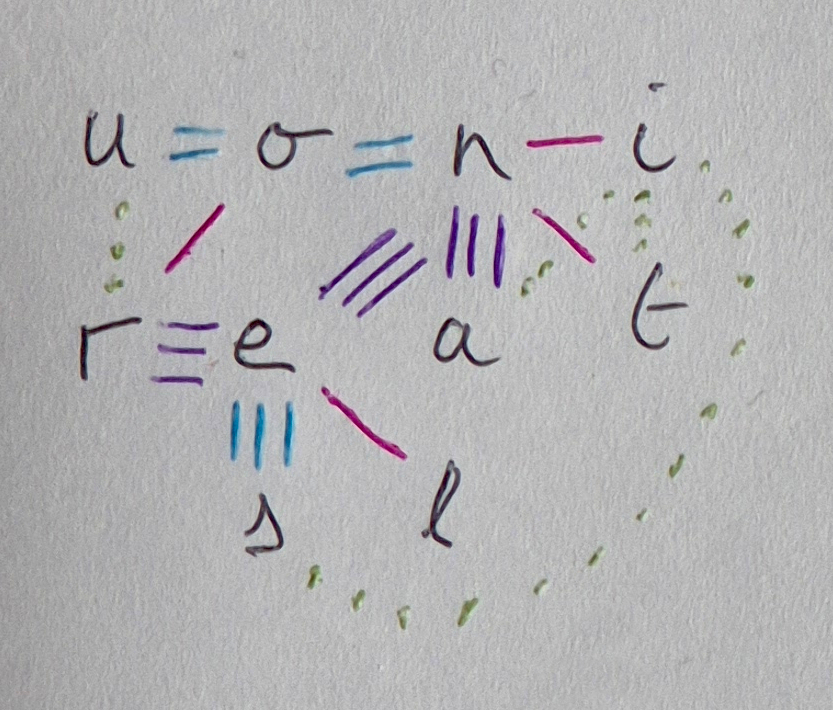 u = o = n - i
r ≡ e a t
s l